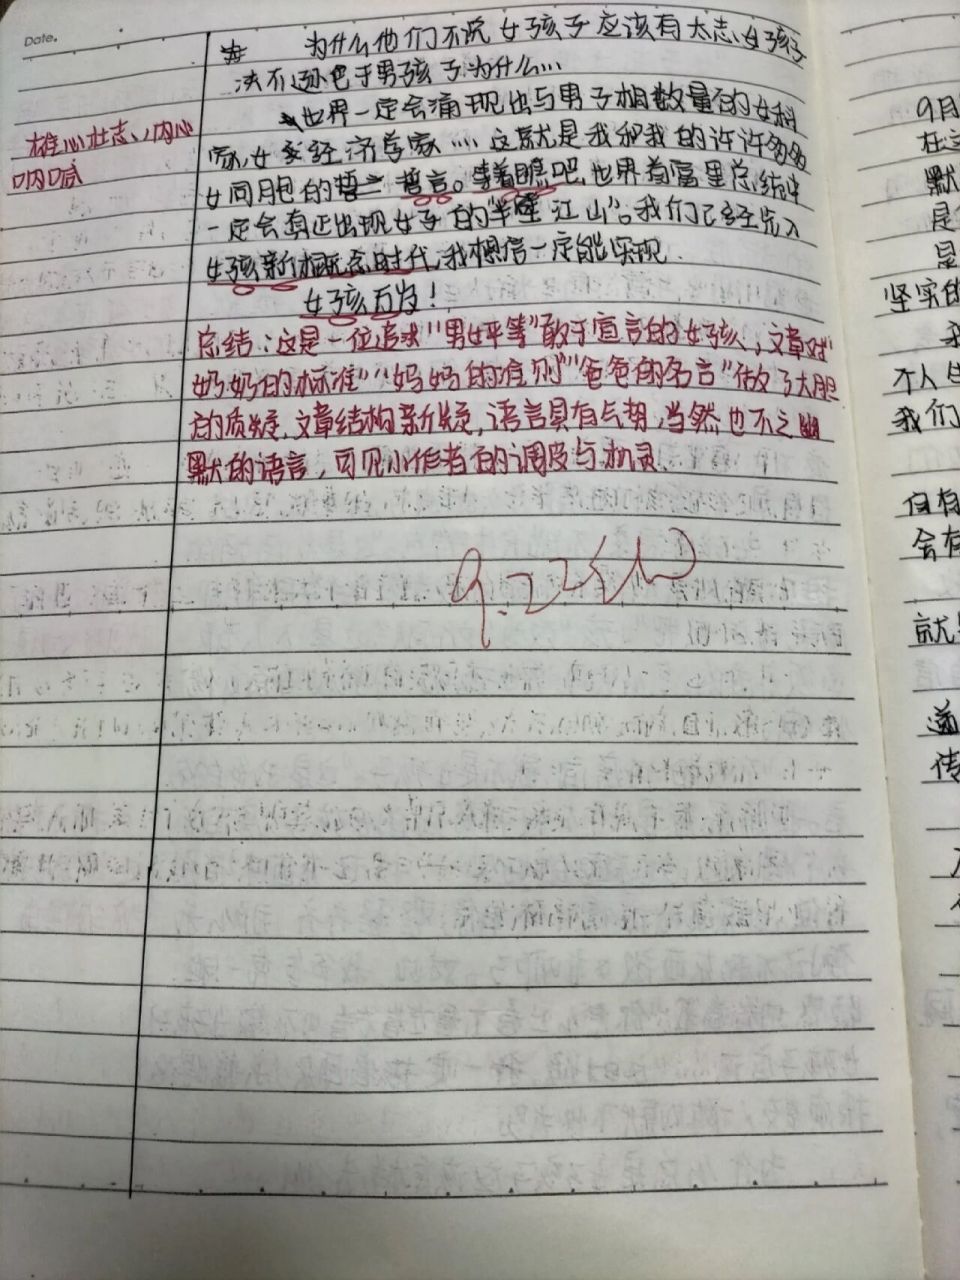 Date.
为什么他们不说女孩子应该有大志、女孩子
决不逊色于男孩子为什么…
世界一定会涌现出与男子相数量的女科
家,女经济学家…,这就是我和我的许许多多
女同胞的誓言。等着瞧吧,世界首富里总统中
一定会真正出现女子的"半壁江山"。我们已经步入
女孩新概念时代,我相信一定能实现.
女孩万岁!
雄心壮志、内心
呐喊
总结:这是一位追求"男女平等"敢于宣言的女孩,文章对
奶奶的标准""妈妈的准则""爸爸的名言"做了大胆
的质疑,文章结构新颖,语言具有气势,当然也不乏幽
默的语言,可见小作者的调皮与机灵.
9.22
9月
在这
默
是
是
坚实的
我
不人
我们
自有
会有
就
传